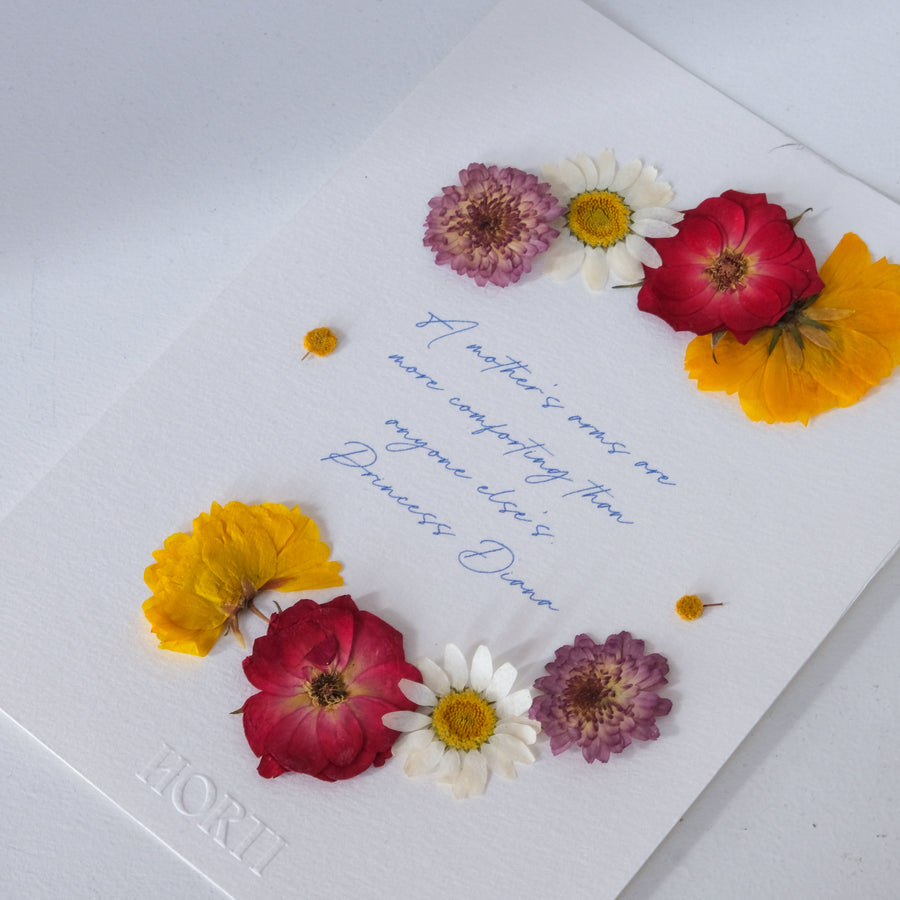 A mother's arms are
more comforting than
anyone else's.
Princess Diana
HORII